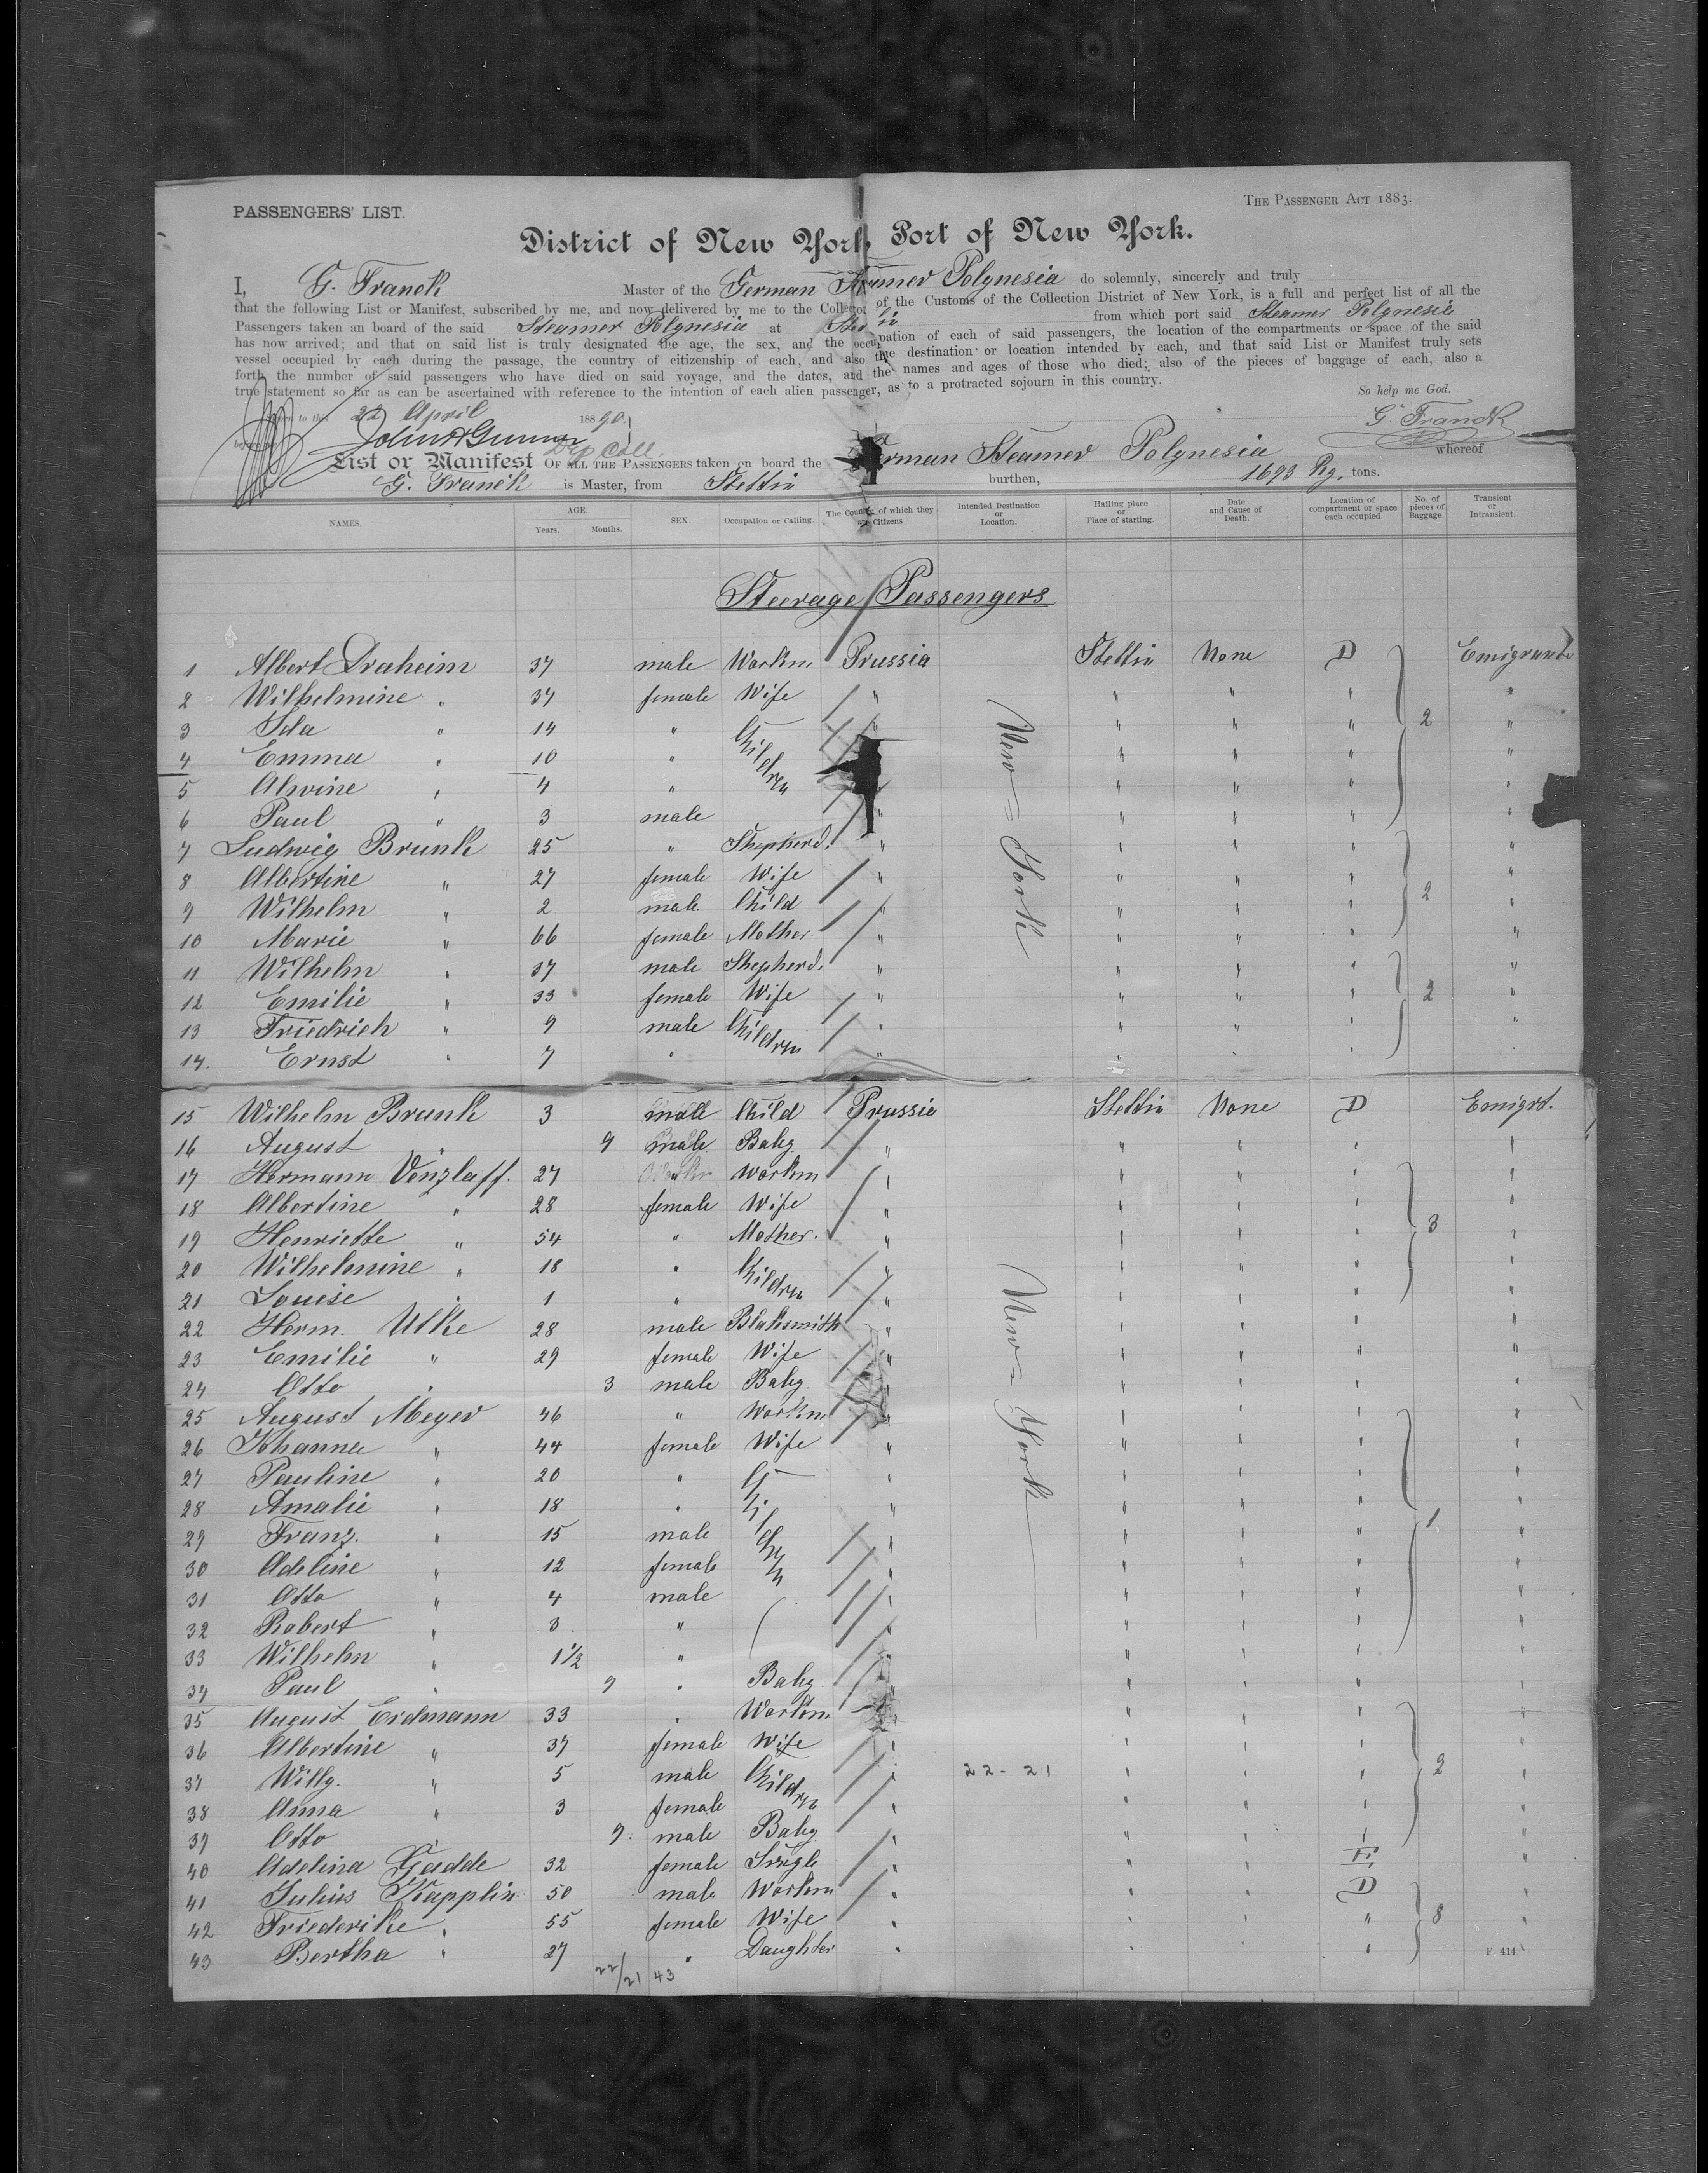 PASSENGERS' LIST.
THE PASSENGER ACT 1883.
District of New York, Port of New York.
I, G. Franck Master of the German Steamer Polynesia do solemnly, sincerely and truly
that the following List or Manifest, subscribed by me, and now delivered by me to the Collector of the Customs of the Collection District of New York, is a full and perfect list of all the
Passengers taken an board of the said Steamer Polynesia at from which port said Steamer Polynesia
has now arrived; and that on said list is truly designated the age, the sex, and the occupation of each of said passengers, the location of the compartments or space of the said
vessel occupied by each during the passage, the country of citizenship of each, and also the destination or location intended by each, and that said List or Manifest truly sets
forth the number of said passengers who have died on said voyage, and the dates, and the names and ages of those who died; also of the pieces of baggage of each, also a
true statement so far as can be ascertained with reference to the intention of each alien passenger, as to a protracted sojourn in this country.
So help me God.
to this 22 April 1890
G. Franck
Dep Coll.
List or Manifest OF ALL THE PASSENGERS taken on board the German Steamer Polynesia whereof
G. Franck is Master, from Stettin burthen, 1693 Rg. tons.
NAMES. AGE. Years. Months. SEX. Occupation or Calling. The Country of which they are Citizens Intended Destination or Location. Hailing place or Place of starting. Date and Cause of Death. Location of compartment or space each occupied. No. of pieces of Baggage. Transient or Intransient.
Steerage Passengers
1 Albert Draheim 37 male Workm Prussia Stettin None D Emigrants
2 Wilhelmine " 37 female Wife " " " " "
3 Ida " 14 " Children " " " " 2 "
4 Emma " 10 " " " " "
5 Alwine " 4 " " " " "
6 Paul " 3 male " " " " "
New=York
7 Ludwig Brunk 25 " Shepherd. " " " " "
8 Albertine " 27 female Wife " " " " "
9 Wilhelm " 2 male Child " " " " 2 "
10 Marie " 66 female Mother " " " " "
11 Wilhelm " 37 male Shepherd. " " " " "
12 Emilie " 33 female Wife " " " " 2 "
13 Friedrich " 9 male Children " " " " "
14. Ernst " 7 " " " " " "
15 Wilhelm Brunk 3 male Child Prussia Stettin None D Emigrt.
16 August " 9 male Baby " " " " "
17 Hermann Venzlaff. 27 " Workm " " " " "
18 Albertine " 28 female Wife " " " " "
19 Henriette " 54 " Mother. " " " " 3 "
20 Wilhelmine " 18 " Children " " " " "
21 Louise " 1 " " " " " "
New=York
22 Herm. Utke 28 male Blaksmith " " " " "
23 Emilie " 29 female Wife " " " " "
24 Otto " 3 male Baby " " " " "
25 August Meyer 46 " Workm " " " " "
26 Johanna " 44 female Wife " " " " "
27 Pauline " 20 " Children " " " " "
28 Amalie " 18 " " " " " "
29 Franz. " 15 male " " " " 1 "
30 Adeline " 12 female " " " " "
31 Otto " 4 male " " " " "
32 Robert " 3 " " " " " "
33 Wilhelm " 1½ " " " " " "
34 Paul " 9 " Baby " " " " "
35 August Erdmann 33 " Workm " " " " "
36 Albertine " 37 female Wife " " " " "
37 Willy. " 5 male Children " 22-21 " " " 2 "
38 Anna " 3 female " " " " "
39 Otto " 9. male Baby " " " " "
40 Adelina Gadde 32 female Single " " " E "
41 Julius Kapplin 50 male Workm " " " D "
42 Friederike " 55 female Wife " " " " 8 "
43 Bertha " 27 " Daughter " " " " "
22/21 43
F 414